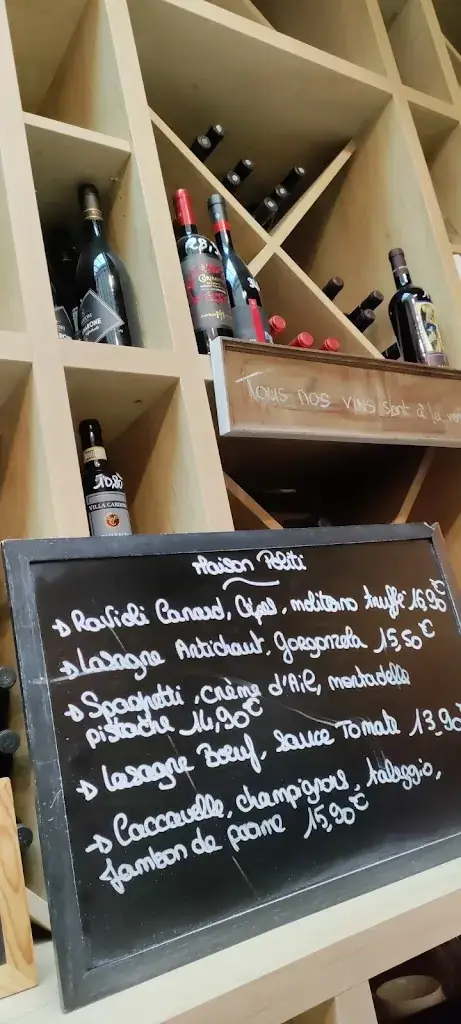 Tous nos vins sont à la
10,80
VILLA
Maison Politi
→ Ravioli Canard, Cèpes, moliterno truffé 16,90€
→ Lasagne Artichaut, gorgonzola 15,50€
→ Spaghetti, crème d'Ail, mortadelle
pistache 14,90€
→ Lasagne Boeuf, sauce Tomate 13,90
→ Caccavelle, champignons, taleggio,
Jambon de parme 15,90€